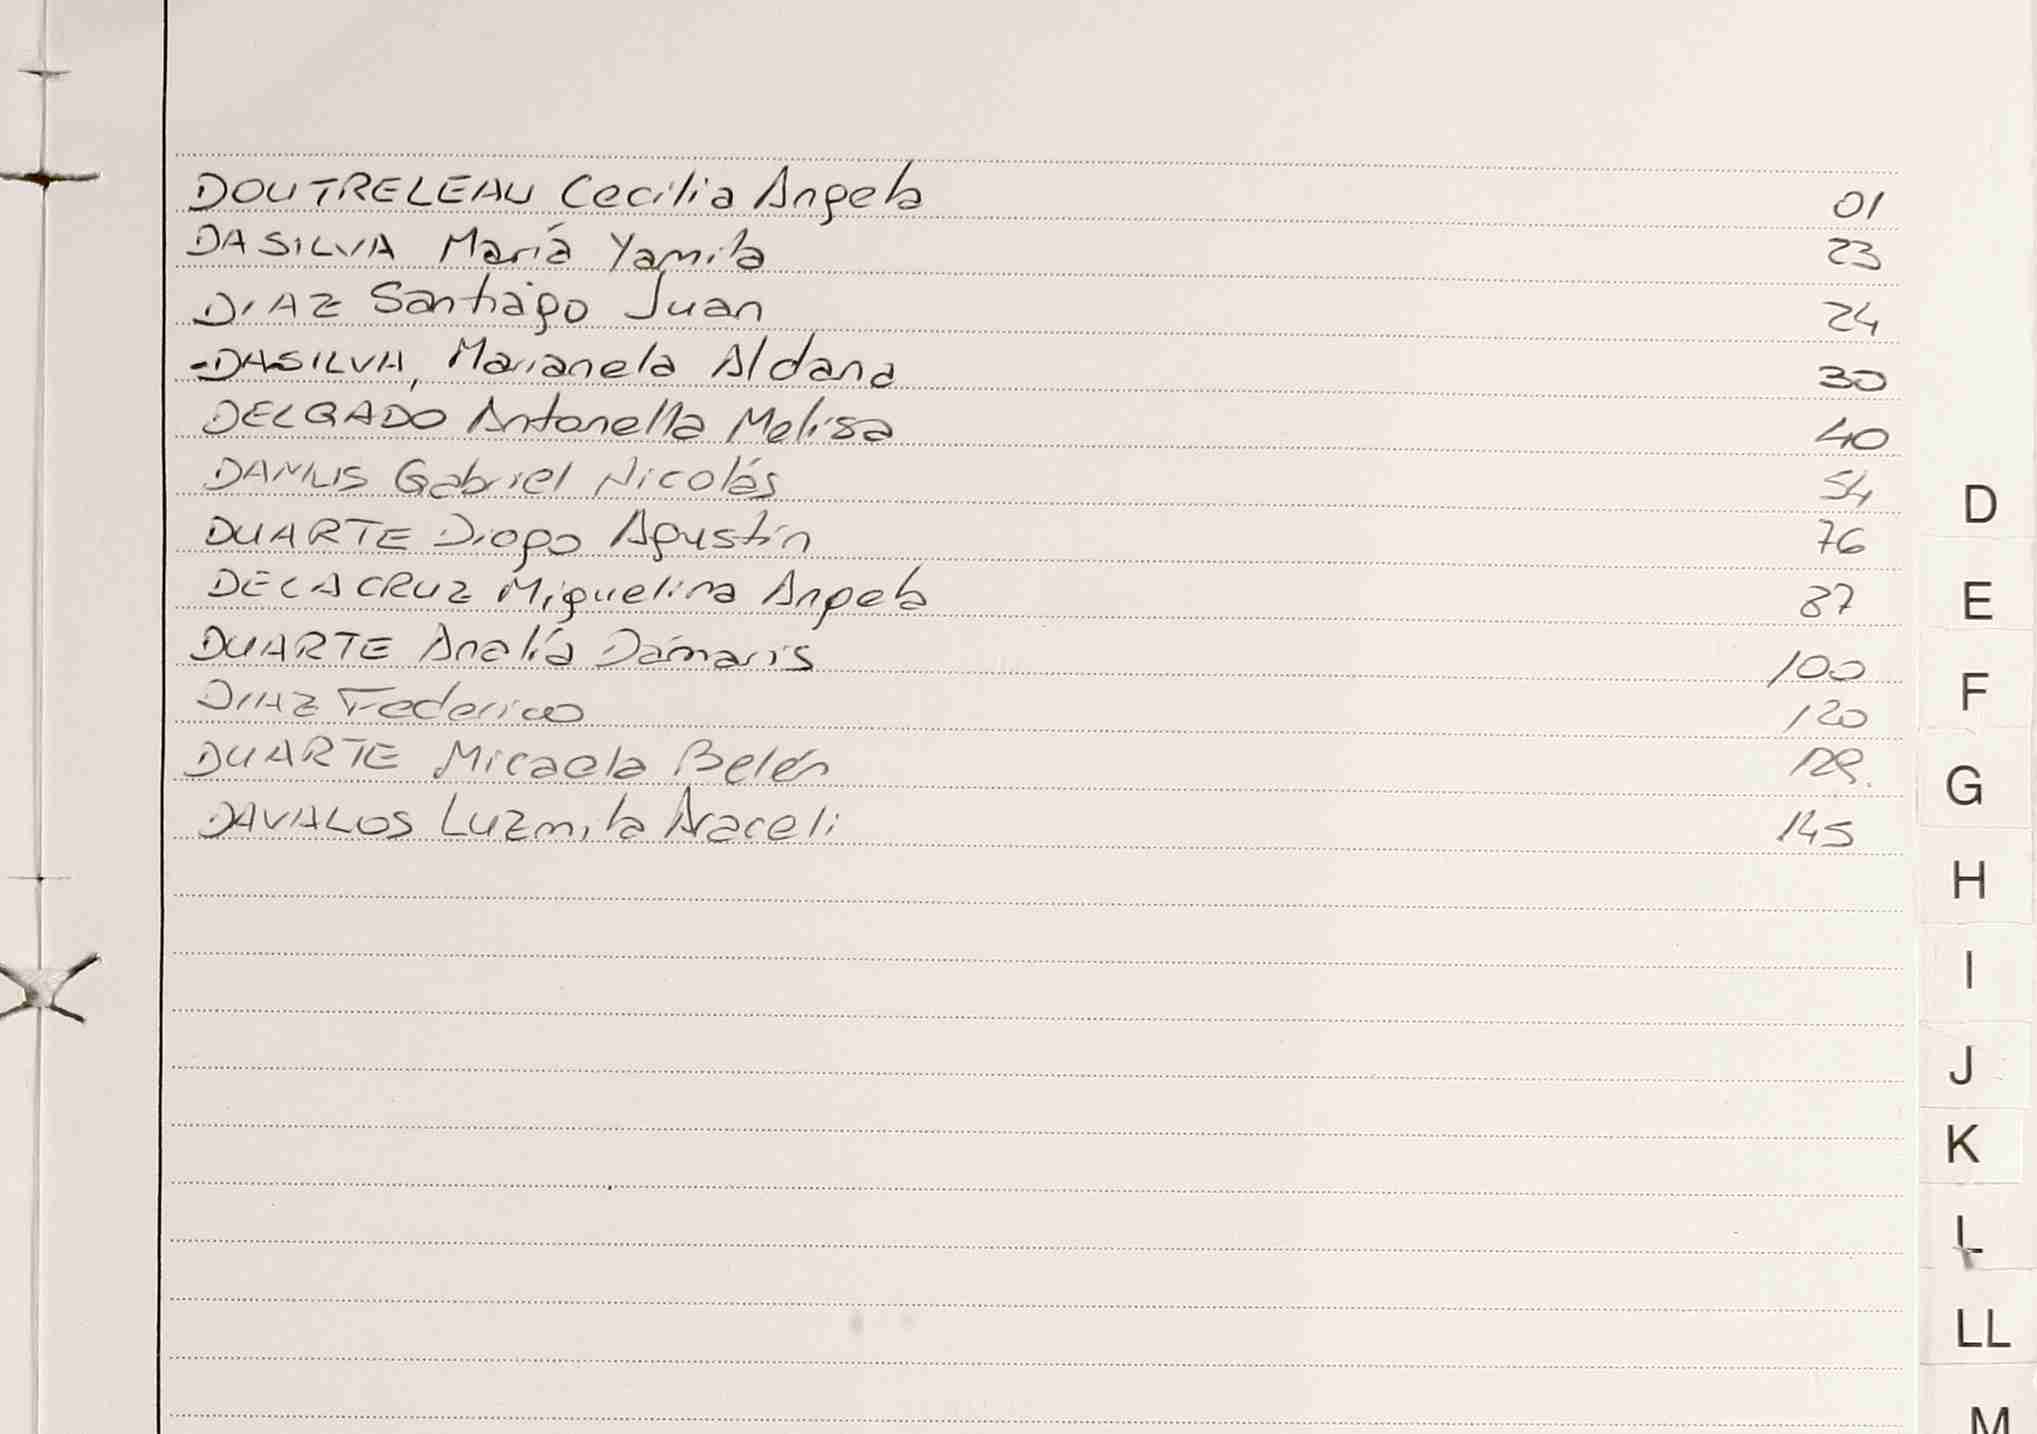 DOUTRELEAU Cecilia Angela 01
DASILVA María Yamila 23
DIAZ Santiago Juan 24
-DASILVA, Marianela Aldana 30
DELGADO Antonella Melisa 40
DANUS Gabriel Nicolás 54
DUARTE Diogo Agustín 76
DELACRUZ Miguelina Angela 87
DUARTE Analía Dámaris 100
DIAZ Federico 120
DUARTE Micaela Belén 129.
DAVALOS Luzmila Araceli 145
D
E
F
G
H
I
J
K
L
LL
M